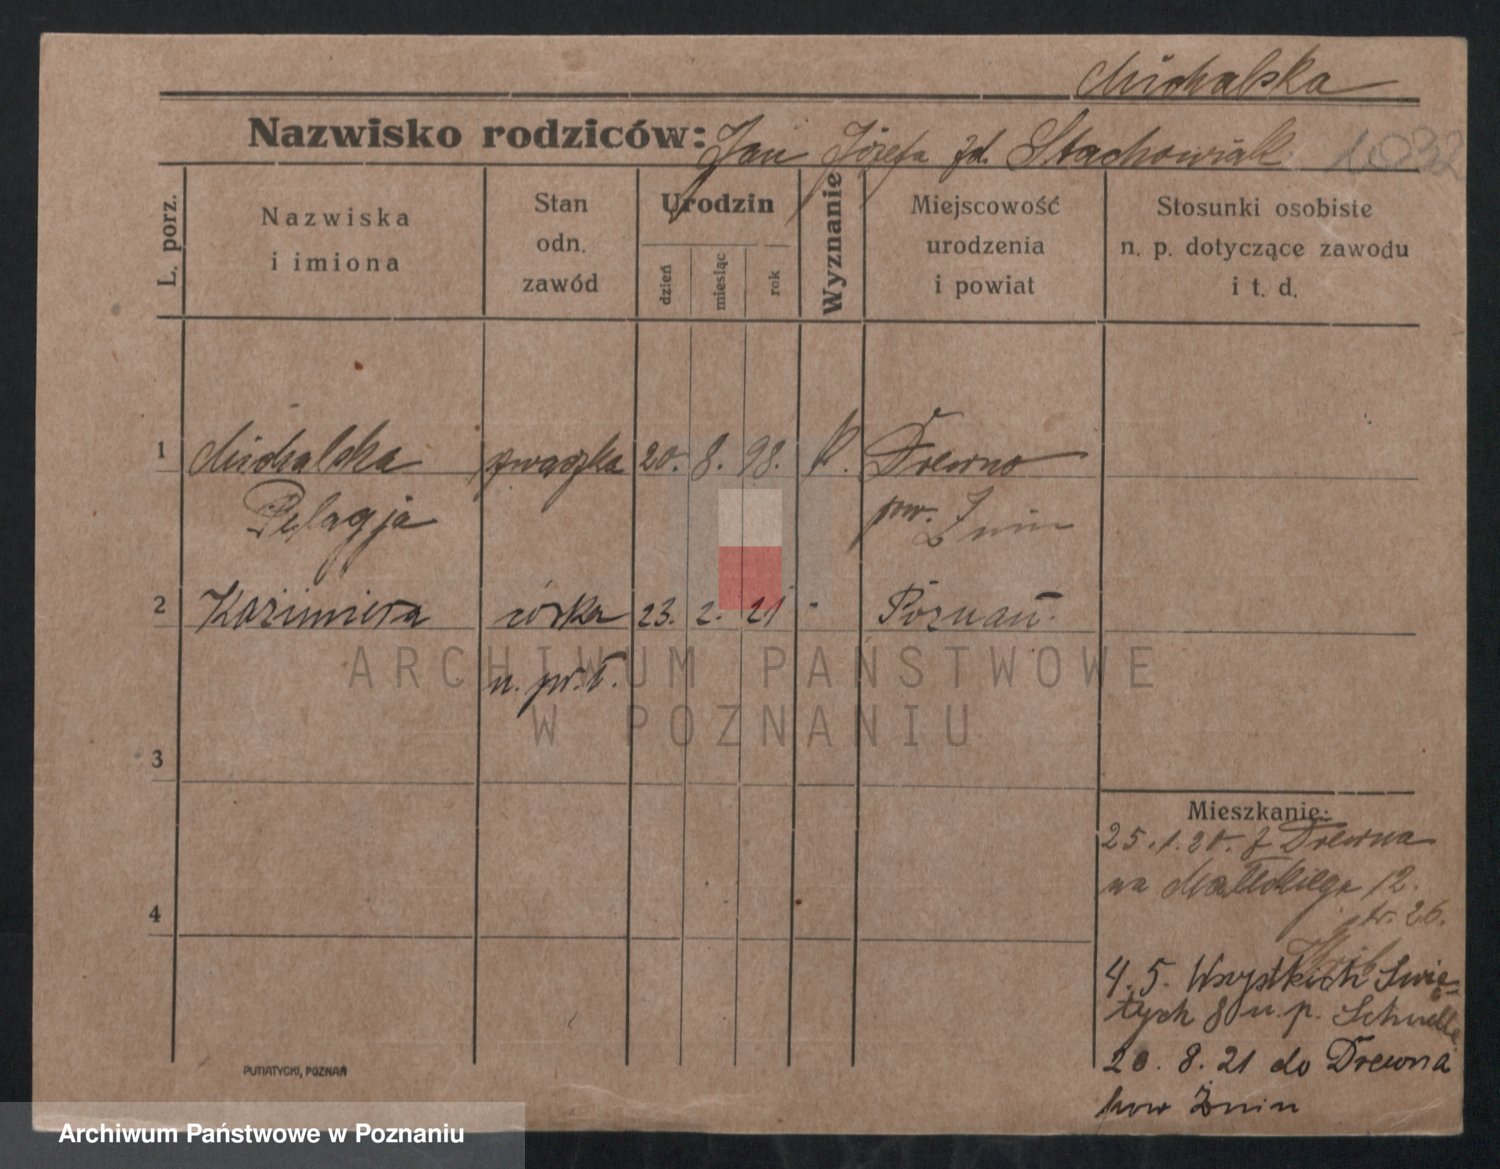 Michalska
Nazwisko rodziców: Jan Józefa zd. Stachowiak 1032
L. porz.
Nazwiska i imiona
Stan odn. zawód
Urodzin
dzień
miesiąc
rok
Wyznanie
Miejscowość urodzenia i powiat
Stosunki osobiste n. p. dotyczące zawodu i t. d.
1 Michalska 20. 8. 98. k. Drewno
Pelagja pow. Żnin
2 Kazimiera córka 23. 2. 21 " Poznań
n. pr. ł.
3
4
Mieszkanie:
25.1.20. z Drewna
na Małeckiego 12.
tr. 26.
4. 5. Wszystkich Świę-
tych 8 u. p. Schnelle
20. 8. 21 do Drewna
pow Żnin
PUTIATYCKI, POZNAŃ
ARCHIWUM PAŃSTWOWE
W POZNANIU
Archiwum Państwowe w Poznaniu